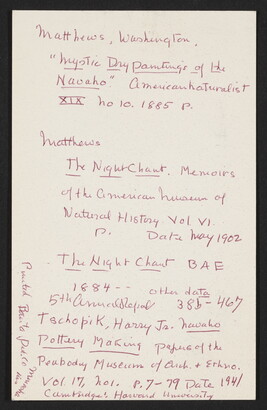 Matthews, Washington.
"Mystic Dry Paintings of the
Navaho" American Naturalist
XIX No 10. 1885 P.
Matthews
The Night Chant. Memoirs
of the American Museum of
Natural History Vol VI.
P. Date May 1902
The Night Chant BAE
1884 -- other data
5th Annual Report 385-467
Tschopik, Harry Jr. Navaho
Pottery Making papers of the
Peabody Museum of Arch. & Ethno.
Vol. 17, No 1. P. 7-79 Date 1941
Cambridge: Harvard University
Printed